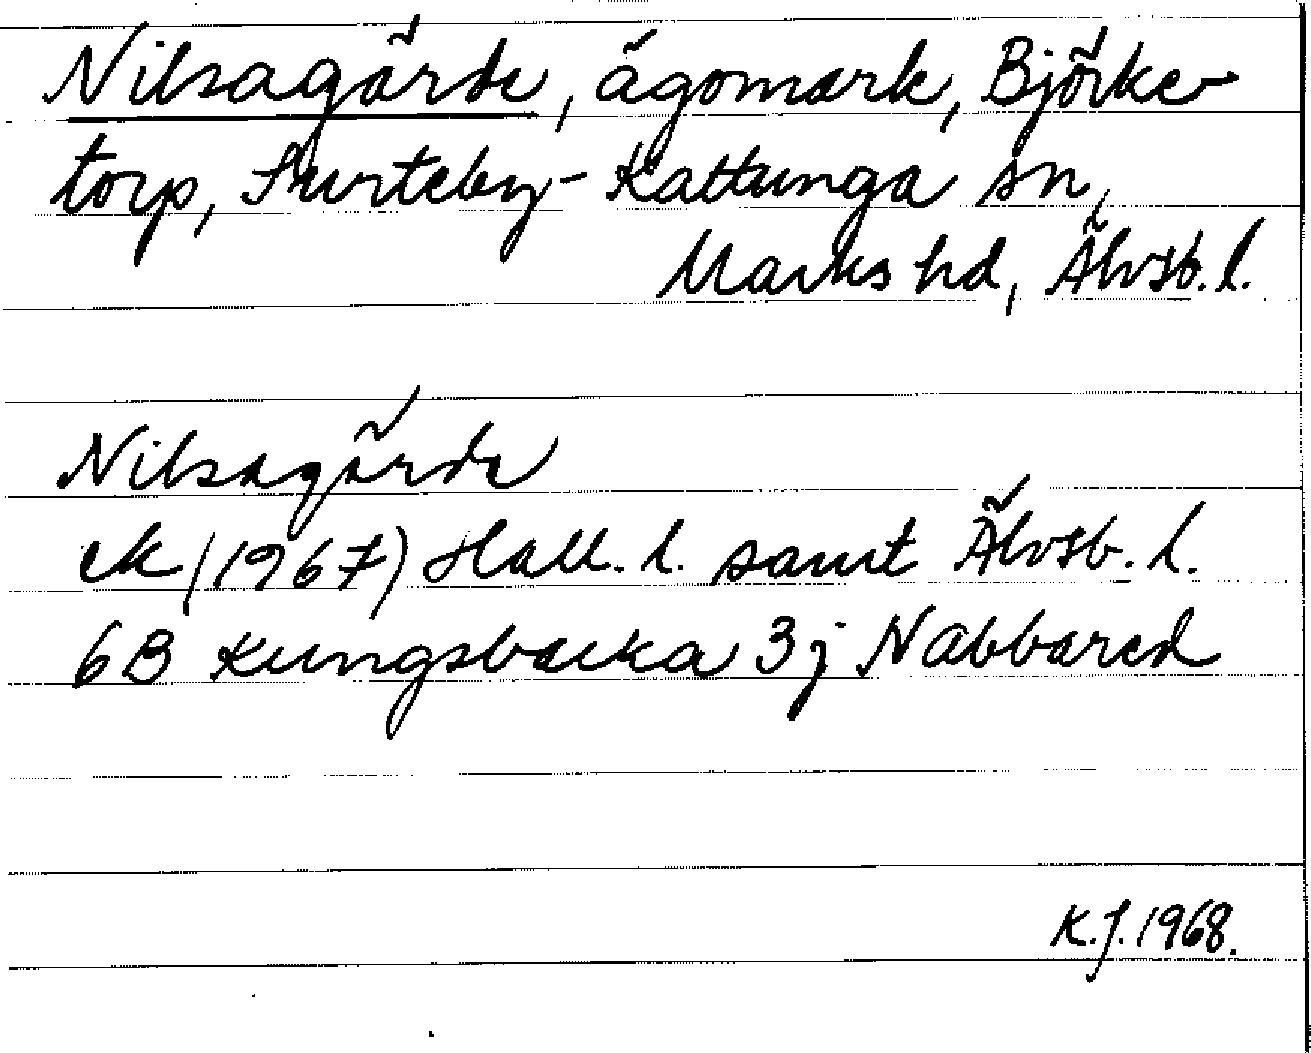 Nilsagärde, ägomark, Björke-
torp, Surteby-Kattunga sn,
Marks hd, Älvsb. l.
Nilsagärde
ek (1967) Hall. l. samt Älvsb. l.
6B Kungsbacka 3j Nabbared
K.J. 1968.